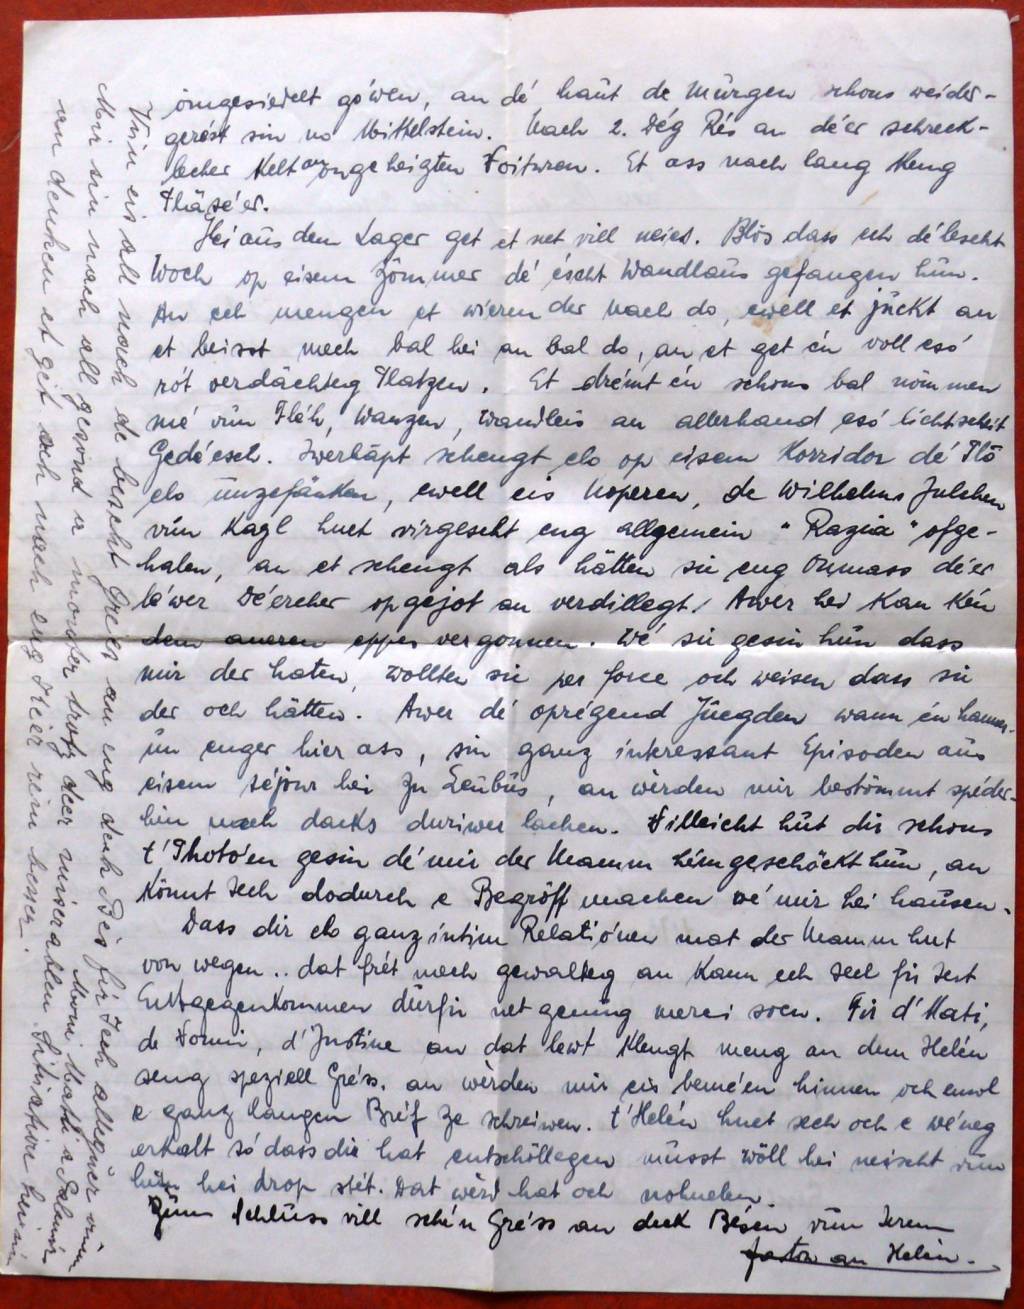 ömgesiedelt gówen, an dé haut de Mürgen schons weider-
gerést sin no Mittelstein. Nach 2. Dég Rés an déer schreck-
lecher Kelt an ongeheizten Voituren. Et ass nach lang Meng
Pläséer.
Hei aus dem Lager get et net vill neies. Blös dass ech dé lescht
Woch op eisem Zömmer dé éscht Wandlaus gefangen hun.
An ech mengen et wieren der nach do, ewell et jückt an
et beisst mech bal hei an bal do, an et get én voll esó
rót verdächteg Platzen. Et drémt én schons bal nömmen
mé vun Fléh, Wanzen, Wandleis an allerhand esó lichtscheit
Gedéesch. Iwerhápt schengt elo op eisem Korridor dé Plo
elo unzefänken, ewell eis Noperen, de Wilhelms Julchen
vun Kayl huet virgescht eng allgemein "Razia" ofge-
halen, an et schengt als hätten si eng Onmass déer
léwer Déercher opgejot an verdillegt! Awer hei kan kén
dem aneren eppes vergonnen. Wé si gesin hun dass
mir der haten, wollten si per force och weisen dass si
der och hätten. Awer dé opregend Jüegden wann én hannen-
un enger hier ass, sin ganz interessant Episoden aus
eisem séjour hei zu Leubus, an wërden mir bestömmt spéder-
hin nach dacks driwer lachen. Villeicht hut dir schons
t'Photoen gesin dé mir der Mamm hémgeschöckt hun, an
könnt Iech dodurch e Begröff machen wé mir hei hausen.
Dass dir elo ganz intim Relatiónen mat der Mamm hut
von wegen.. dat frét mech gewalteg an kann ech Iech fir Iert
Entgegenkommen dürfir net genüng merci soen. Fir d'Kati,
de Nonni, d'Justine an dat lewt Klengt meng an dem Helén
seng speziell Gréss, an wërden mir eis beméen hinnen och emol
e ganz langen Bréf ze schreiwen. t'Helén huet sech och e wéneg
erkalt só dass die hat entschöllegen musst wöll hei neischt vun
him hei drop stét. Dat wërd hat och nohuelen.
Zum Schluss vill schén Gréss an deck Bésen vun Ierem
Jatn an Helén.
Vun eis all nach de beschte Gréss an eng deck Bés fir Iech alleguer vum
Moni Mati a Salmir
Mir sin nach all gesond a monter trotz der miserablen Situatioun hei sin
an denken et get och nach eng Kéier rem besser.